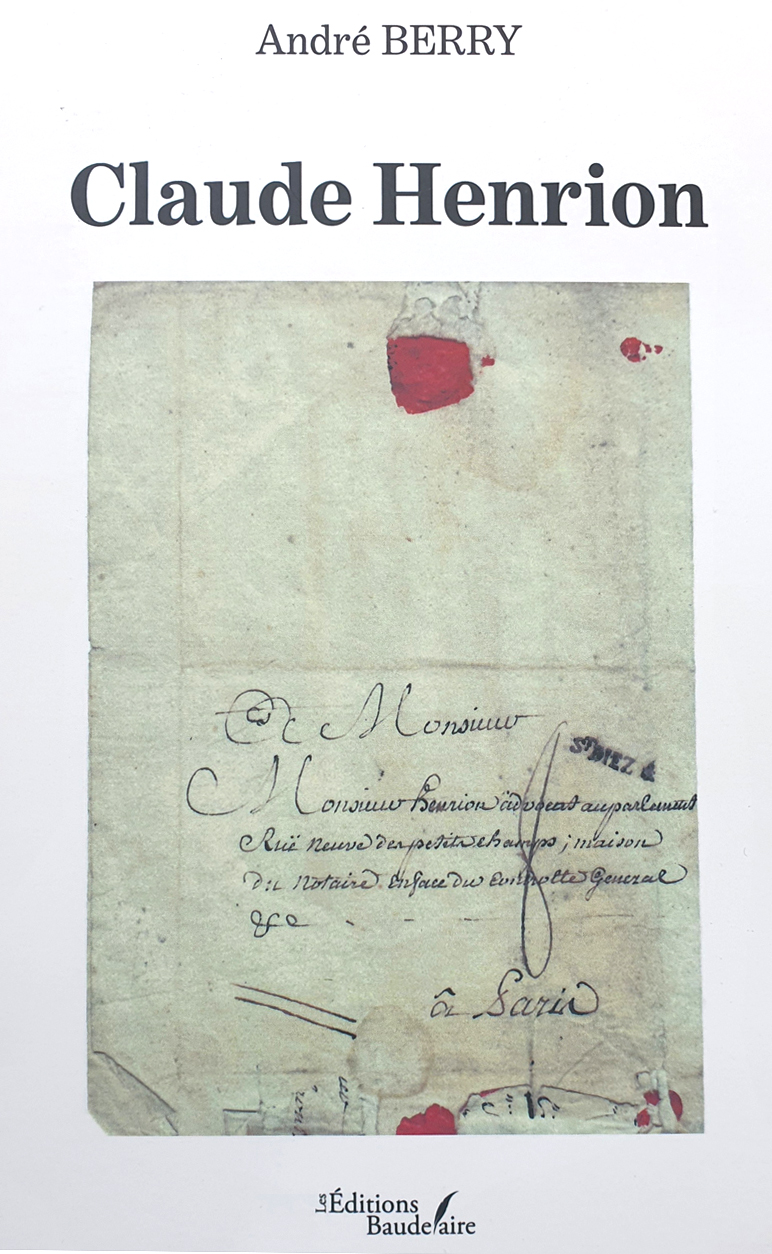 André BERRY
Claude Henrion
A Monsieur
ST DIEZ
Monsieur henrion advocat au parlement
Ruë neuve des petits champs ; maison
du notaire en face du controlle General
&c
à Paris
Les Éditions
Baudelaire